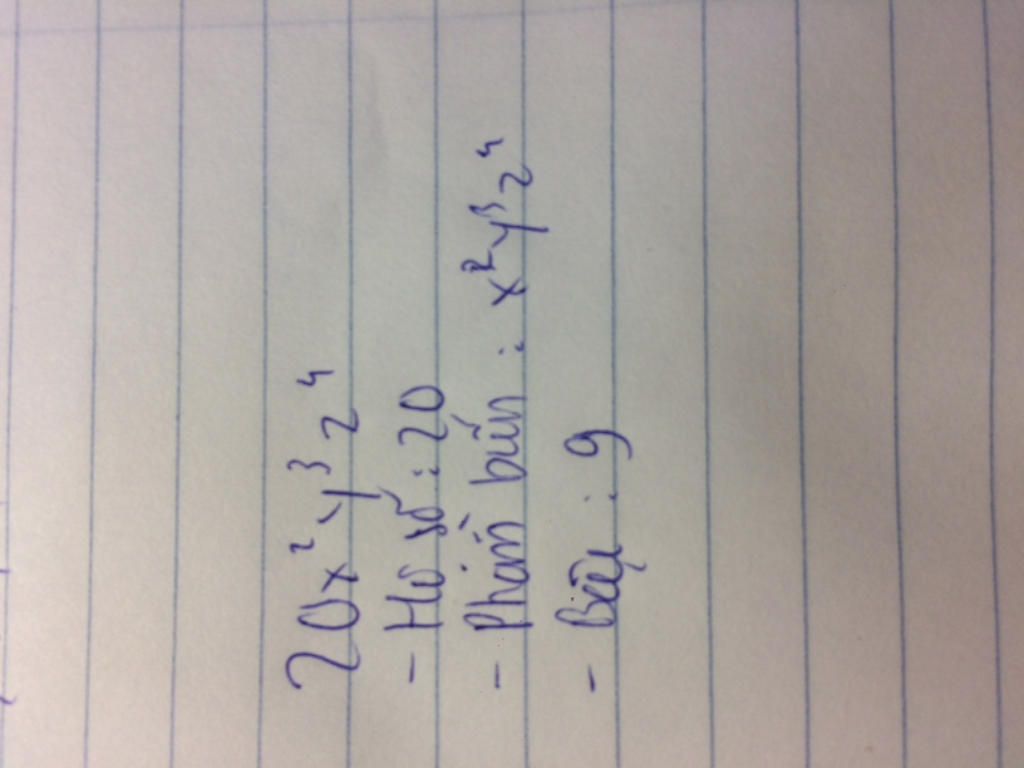 20x²y³z⁴
- Hệ số : 20
- Phần biến : x²y³z⁴
- Bậc : 9